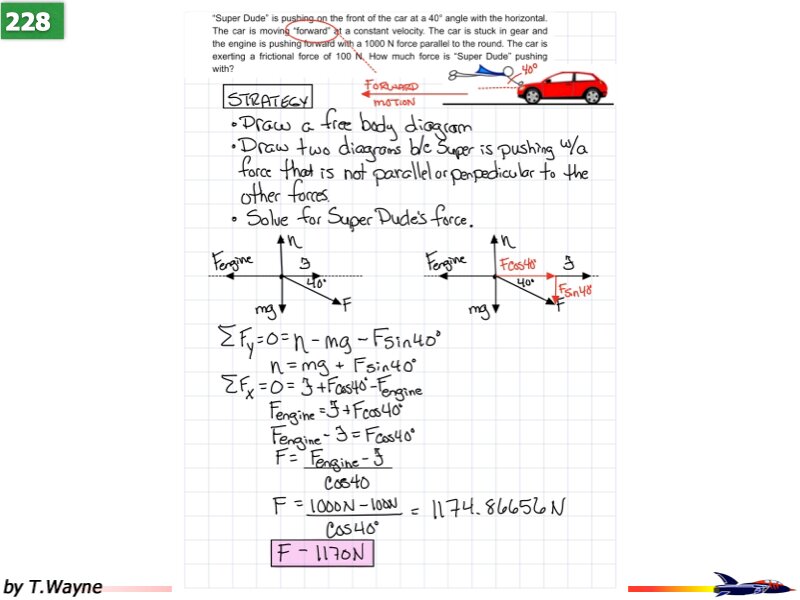 228
"Super Dude" is pushing on the front of the car at a 40° angle with the horizontal.
The car is moving "forward" at a constant velocity. The car is stuck in gear and
the engine is pushing forward with a 1000 N force parallel to the round. The car is
exerting a frictional force of 100 N. How much force is "Super Dude" pushing
with?
40°
FORWARD
MOTION
STRATEGY
• Draw a free body diagram
• Draw two diagrams b/c Super is pushing w/a
force that is not parallel or perpedicular to the
other forces.
• Solve for Super Dude's force.
n
Fengine
ℑ
40°
mg
F
n
Fengine
Fcos40°
ℑ
40°
Fsin40°
mg
F
ΣFy=0=n-mg-Fsin40°
n=mg + Fsin40°
ΣFx=0=ℑ+Fcos40°-Fengine
Fengine=ℑ+Fcos40°
Fengine-ℑ=Fcos40°
F= Fengine-ℑ
cos40
F = 1000N-100N = 1174.86656N
cos40°
F - 1170N
by T.Wayne